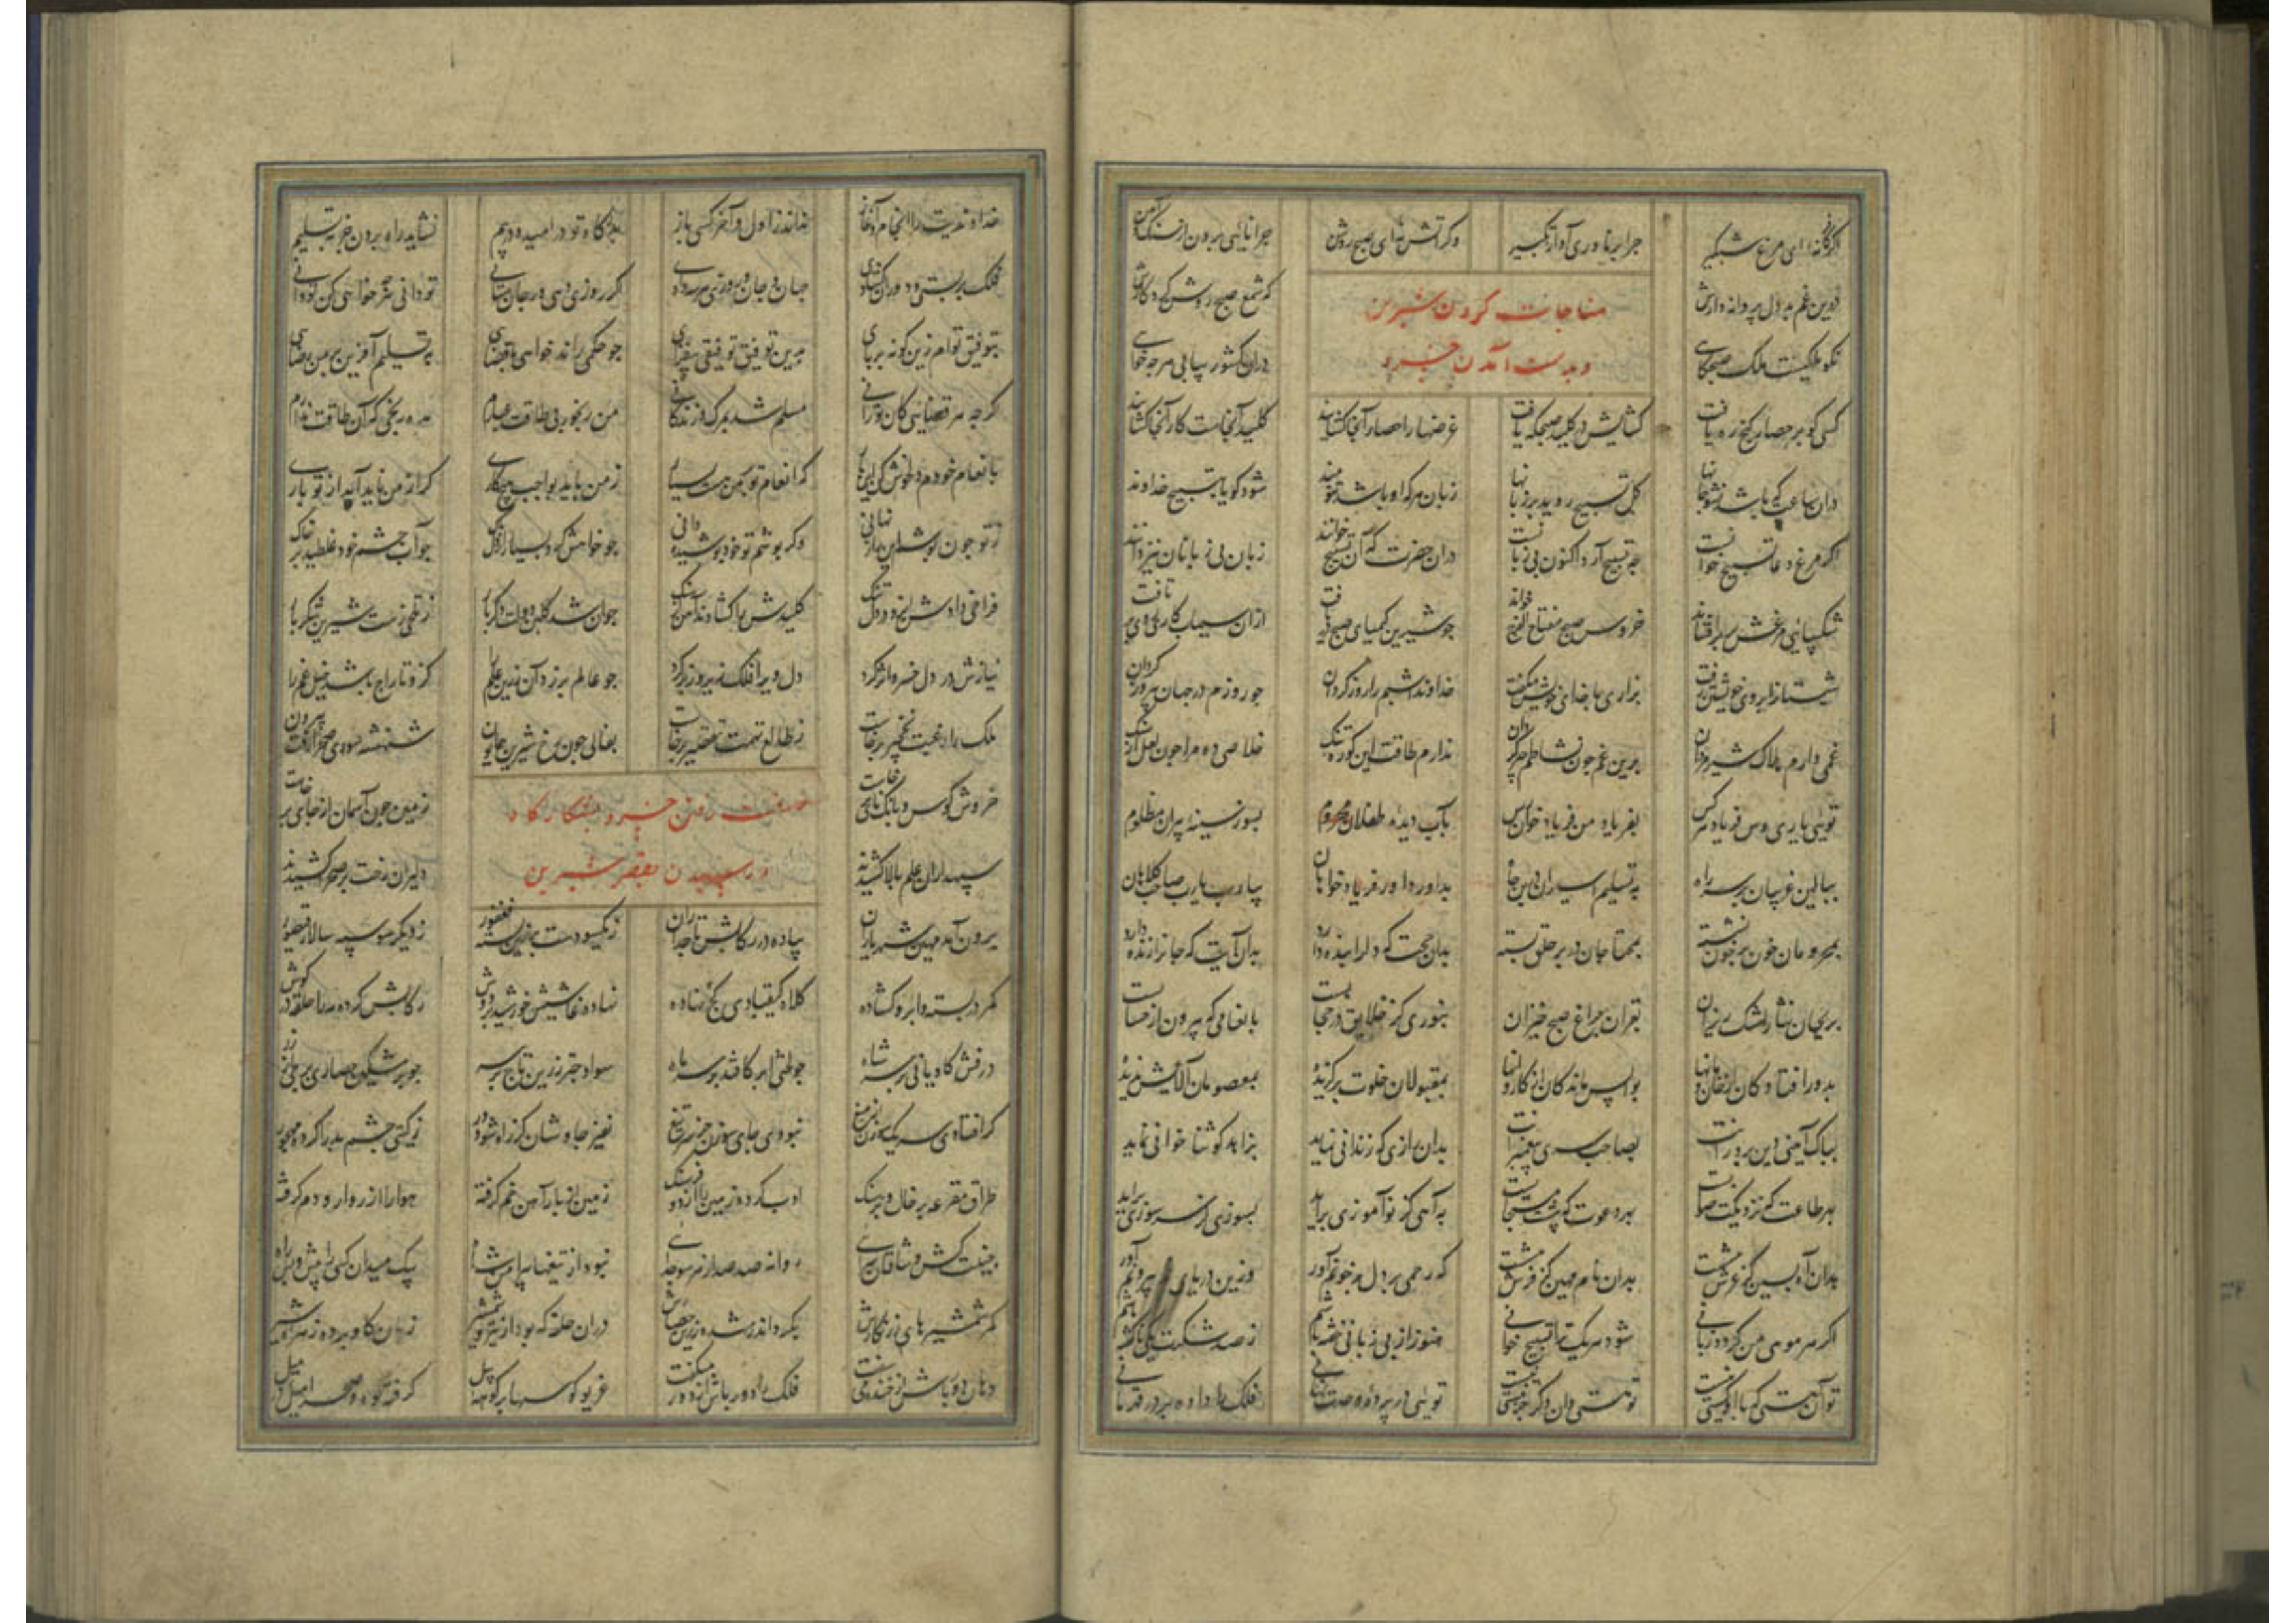 اگر کافر نه ای مرغ شبگیر چرا بر ناوری آواز تکبیر وگر آتش نه ای صبح روشن چرا نایی برون از سنگ و آهن
درین غم بد دل پروانه وارش که شمع صبح روشن کرد کارش
مناجات کردن شیرین
نکو ملکیست ملک صبحگاهی دران کشور بیابی هر چه خواهی
وبدست آمدن خسرو
کسی کو بر حصار گنج ره یافت گشایش در کلید صبحگه یافت غرضها را حصار آنجا گشایند کلید آنجاست کار آنجا گشایند
دران ساعت که باشد نشو جانها گل تسبیح روید بر زبانها زبان هر که او باشد تنومند شود گویا بتسبیح خداوند
اگر مرغ دعا تسبیح خوانست چه تسبیح آرد اکنون بی زبانست دران حضرت که آن تسبیح خوانند زبان بی زبانان نیز دانند
شکیبائی مرغش پر افشاند خروس صبح مفتاح الفرج خواند چو شیرین کیمیای صبح دریافت ازان سیماب کاری روی برتافت
شبستان را بروی خویشتن رفت بزاری با خدای خویش میگفت خداوندا شبم را روز گردان چو روزم در جهان پیروز گردان
غمی دارم هلاک شیر مردان برین غم چون نشاطم چیر گردان ندارم طاقت این کوره تنگ خلاصی ده مرا چون لعل از سنگ
تویی یاری رس فریاد هر کس بفریاد من فریاد خوان رس بآب دیده طفلان محروم بسوز سینه پیران مظلوم
ببالین غریبان بر سر راه به تسلیم اسیران در بن چاه بداور داور فریاد خواهان بیارب یارب صاحب کلاهان
بمحرومان خون بر خون نشسته بمحتاجان در بر خلق بسته بدان حجت که دلرا بنده دارد بدان آیت که جانرا زنده دارد
بریحان نثار اشک ریزان بقرآن چراغ صبح خیزان بنوری کز خلایق در حجابست بانعامی که بیرون از حسابست
بدور افتادگان از خان و مانها بواپس ماندگان از کاروانها بمقبولان خلوت برگزیده بمعصومان آلایش ندیده
بپاک آیینی دین پرورانت بصاحب سری پیغمبرانت بدان رازی که زندانی نماید بزاهد کو ثنا خوانی نماید
بهر طاعت که نزدیکت صوابست بهر دعوت که پیشت مستجابست به آهی کز نوآموزی برآید بسوزی کز سر سوزی برآید
بدان آه پسین کز عرش پیشست بدان نام مهین کز فرش بیشست که رحمی بر دل پر خونم آور وزین دریای غم بیرونم آور
اگر هر موی من گردد زبانی شود هر یک ترا تسبیح خوانی هنوز از بی زبانی خفته باشم ز صد شکرت یکی ناگفته باشم
تو آن هستی که با تو کیستی نیست تو هستی وان دگر جز نیستی نیست تویی در پرده وحدت نهانی فلک را داده بر در قهرمانی
خداوندیت را انجام و آغاز نداند ز اول و آخر کسی باز بدرگاه تو در امید و در بیم نشاید راه بردن جز به تسلیم
فلک بر بستی و دوران گشادی جهان و جان و روزی هر سه دادی گر روزی دهی ور جان ستانی تو دانی هر چه خواهی کن تو دانی
بتوفیق توام زین گونه بر پای برین توفیق توفیقی بیفزای چو حکمی راند خواهی یا قضایی به تسلیم آفرین بر من رضایی
گر چه هر قضایی کان تو رانی مسلم شد بمرگ و زندگانی من رنجور بی طاقت عیارم مده رنجی که آن طاقت ندارم
بانعام خودم دلخوش کن این بار که انعام تو بر من هست بسیار ز من باید بواجب هیچ کاری گر از من ناید آید از تو باری
ز تو چون پوشم این راز نهانی وگر پوشم تو خود پوشیده دانی چو خواهش کرد بسیار از دل پاک چو آب چشم خود غلطید بر خاک
فراخی دادش ایزد در دل تنگ کلیدش را گشادند آهن از سنگ جوان شد گلبن دولت دگر بار ز تلخی رست شیرین شکربار
نیازش در دل خسرو اثر کرد دل ویرا فلک زیر و زبر کرد چو عالم بر زد آن زرین علم را کزو تاراج باشد خیل غم را
ملک را رغبت نخجیر برخاست ز طالع تهمت تقصیر برخاست بفالی چون رخ شیرین همایون شهنشه سوی صحرا رفت بیرون
خروش کوس و بانگ نای برخاست زمین چون آسمان از جای برخاست
صفت رفتن خسرو بشکارگاه
سپهداران علم بالا کشیدند دلیران رخت بر صحرا کشیدند
ورسیدن بقصر شیرین
برون آمد مهین شهریاران پیاده در رکابش تاجداران ز یکسو دست بر زین بسته فغفور ز دیگر سو سپه سالار قیصور
کمر در بسته و ابرو گشاده کلاه کیقبادی کج نهاده نهاده غاشیه‌ش خورشید بر دوش رکابش کرده مه را حلقه در گوش
درفش کاویانی بر سر شاه چو لختی ابر کافتد بر سر ماه سواد چتر زرین تاج بر سر چو بر مشکین حصاری برجی از زر
گر افتادی سر یک سوزن از میغ نبودی جای سوزن جز سر تیغ نفیر چاوشان کز راه شو دور ز گیتی چشم بد را کرده مهجور
طراق مقرعه بر خاک و بر سنگ ادب کرده زمین را از دو فرسنگ زمین از بار آهن خم گرفته هوا را از روارو دم گرفته
جنیبت کش وشاقان سرایی روانه صد صد از هر سو جدایی نبود از تیغها پیرامن شاه یک میدان کسی را پیش و پس راه